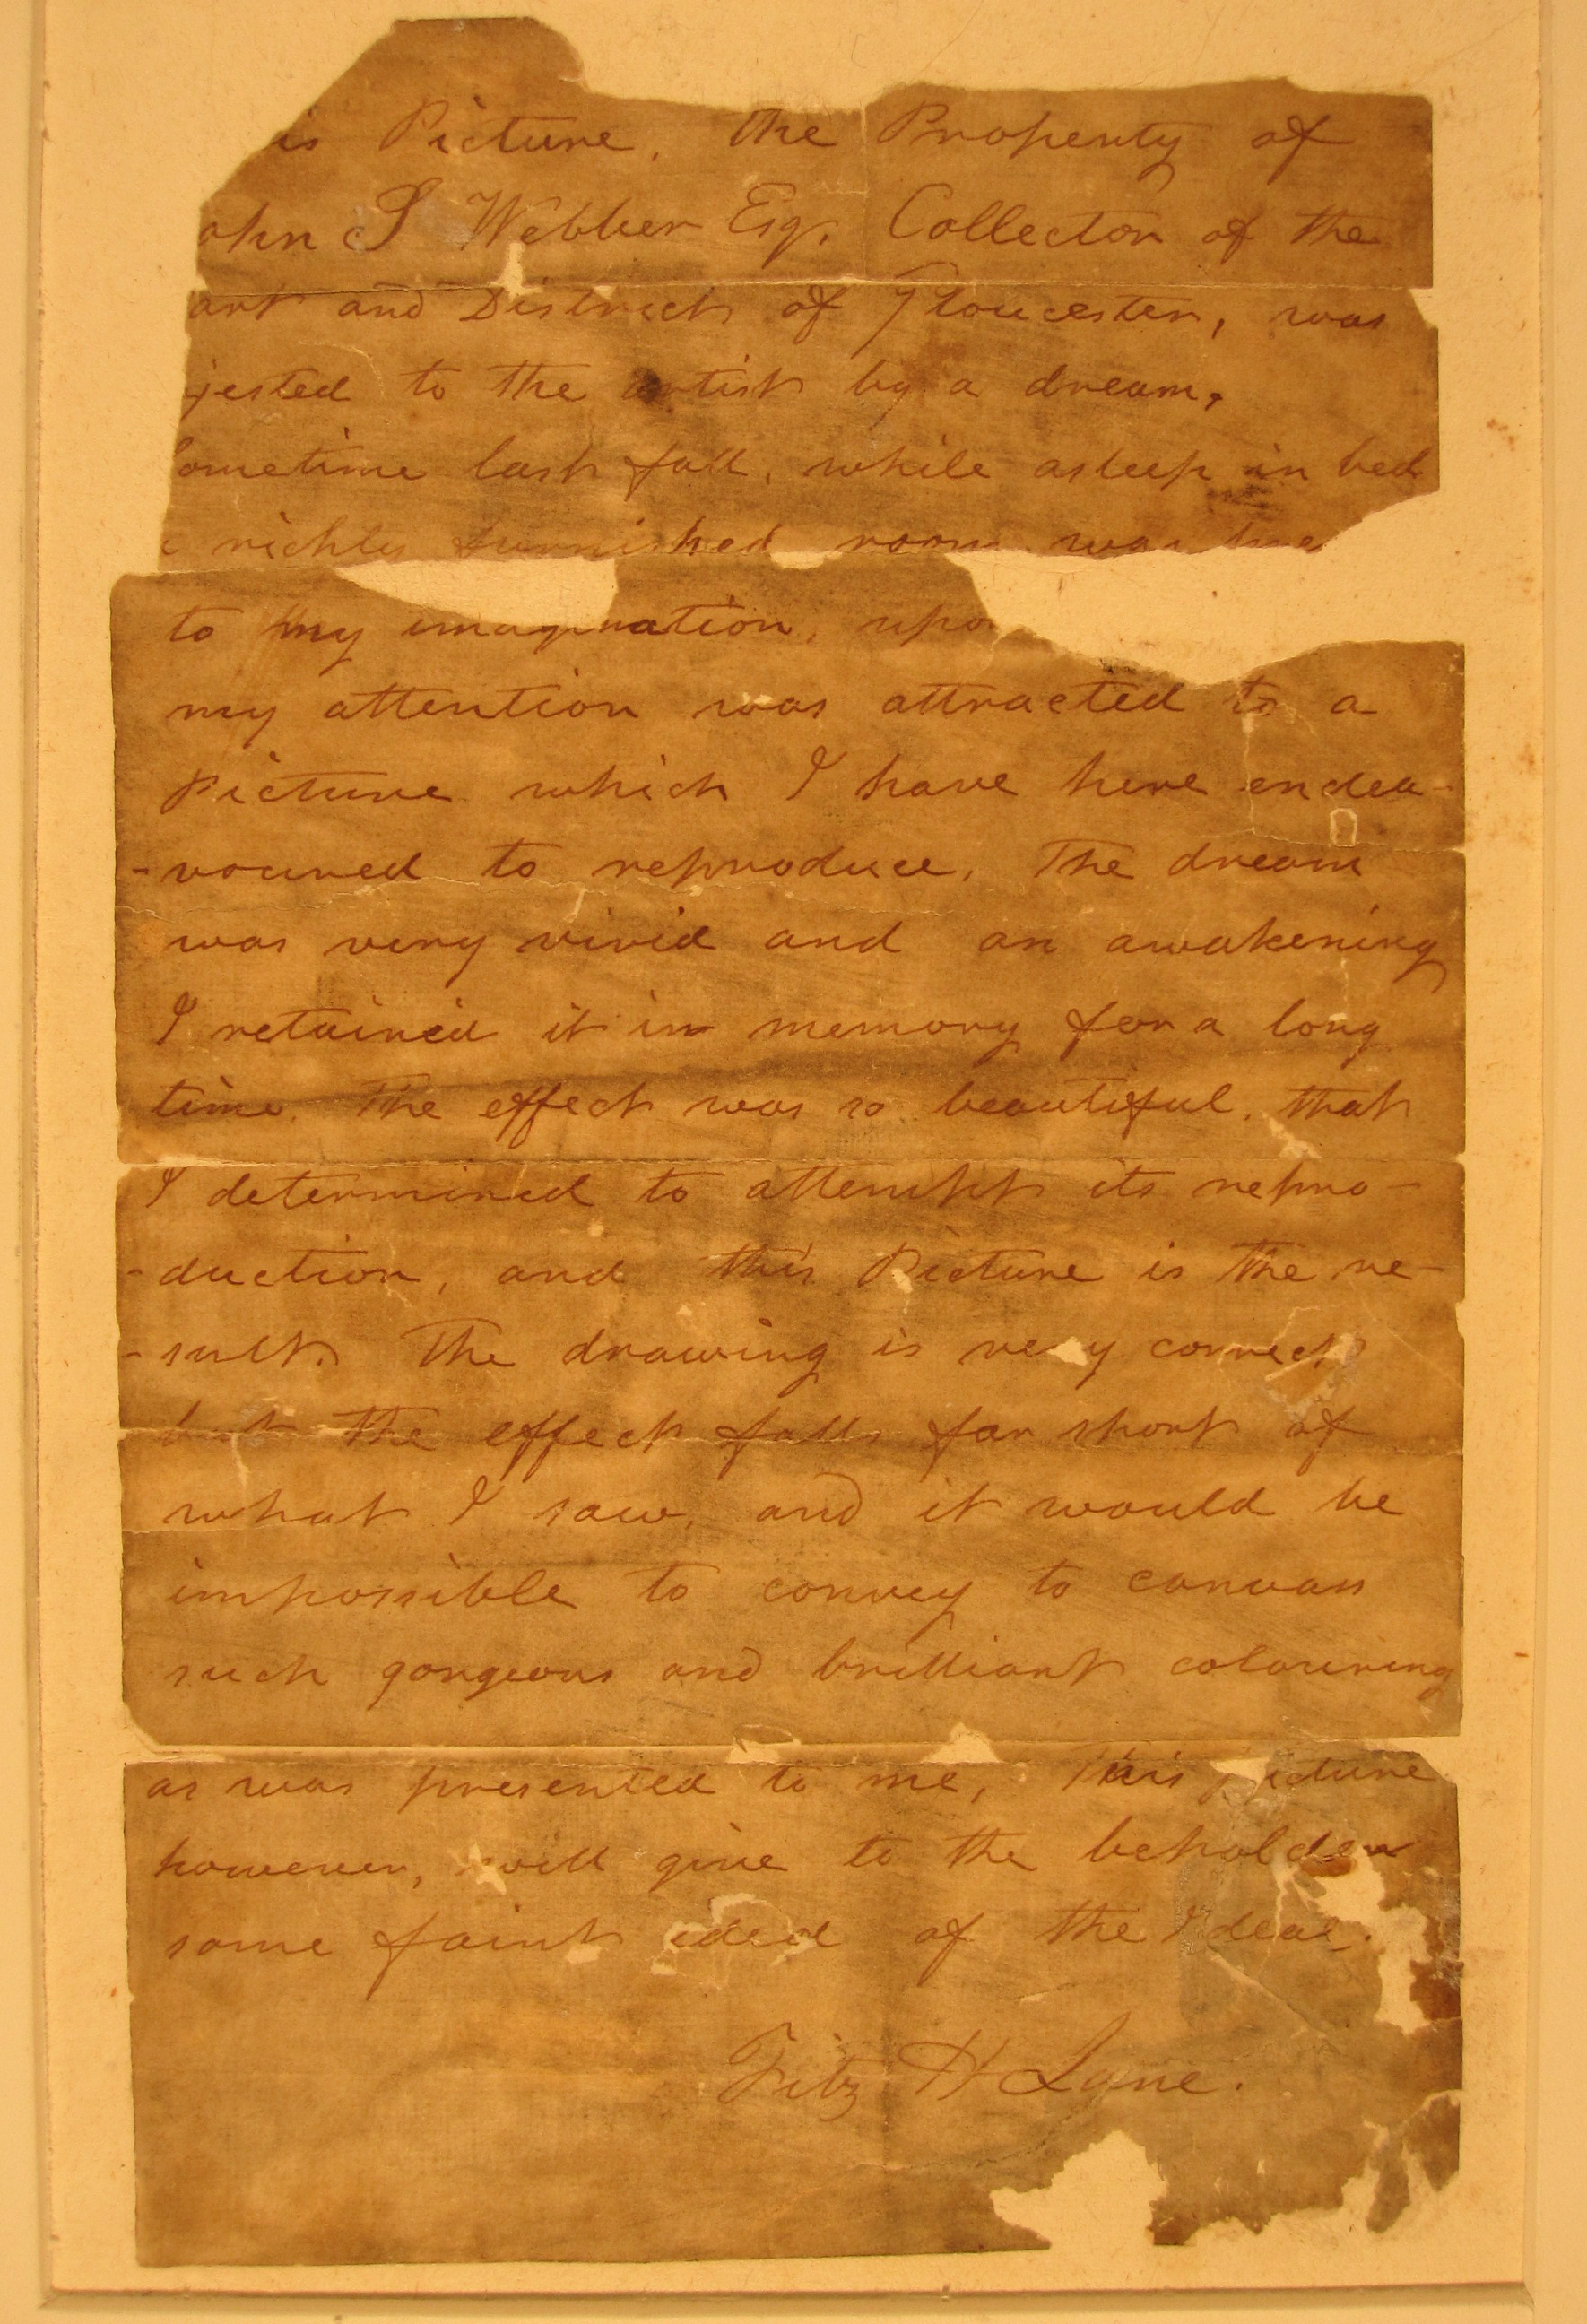 is Picture, the Property of
ohn S Webber Esq. Collector of the
ort and District of Gloucester, was
gested to the artist by a dream.
Sometime last fall, while asleep in bed
richly furnished room was
to my imagination, upo
my attention was attracted to a
picture which I have here endea-
-voured to reproduce. The dream
was very vivid and on awakening
I retained it in memory for a long
time. The effect was so beautiful, that
I determined to attempt its repro-
-duction, and this Picture is the re-
-sult. The drawing is very correct
but the effect falls far short of
what I saw, and it would be
impossible to convey to canvass
such gorgeous and brilliant colouring
as was presented to me, This picture
however, will give to the beholder
some faint idea of the Ideal.
Fitz H Lane.